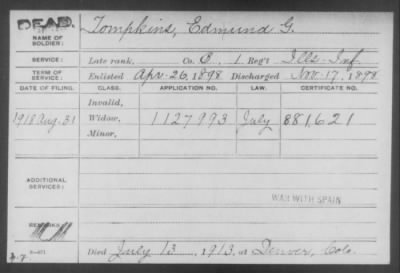 DEAD.
NAME OF SOLDIER: Tompkins, Edmund G.
SERVICE: Late rank, Co. C, 1 Reg't Ills. Inf.
TERM OF SERVICE: Enlisted Apr. 26, 1898 Discharged Nov. 17, 1898
DATE OF FILING. CLASS. APPLICATION NO. LAW. CERTIFICATE NO.
Invalid,
1918 Aug. 31 Widow, 1127993 July 881621
Minor,
ADDITIONAL SERVICES:
WAR WITH SPAIN
REMARKS:
Died July 13, 1913, at Denver, Colo.